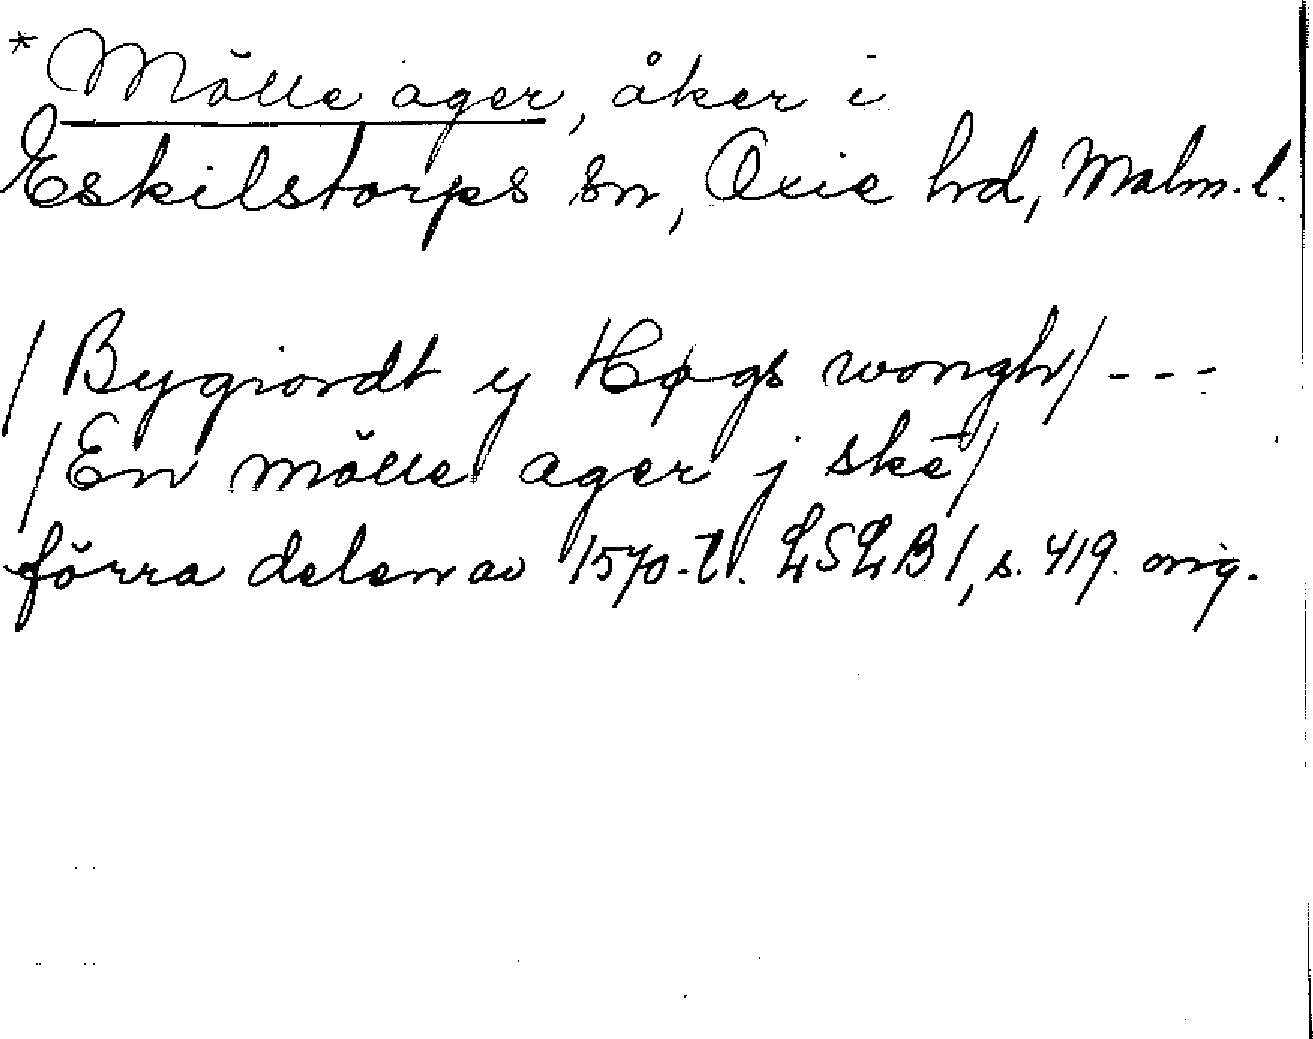 *Mölle ager, åker i
Eskilstorps sn, Oxie hd, Malm. l.
/Bygiordt y Høgs wongh/ ---
/En mölle ager j skē/
förra delen av 1570-t. LSLB1, s. 419. orig.